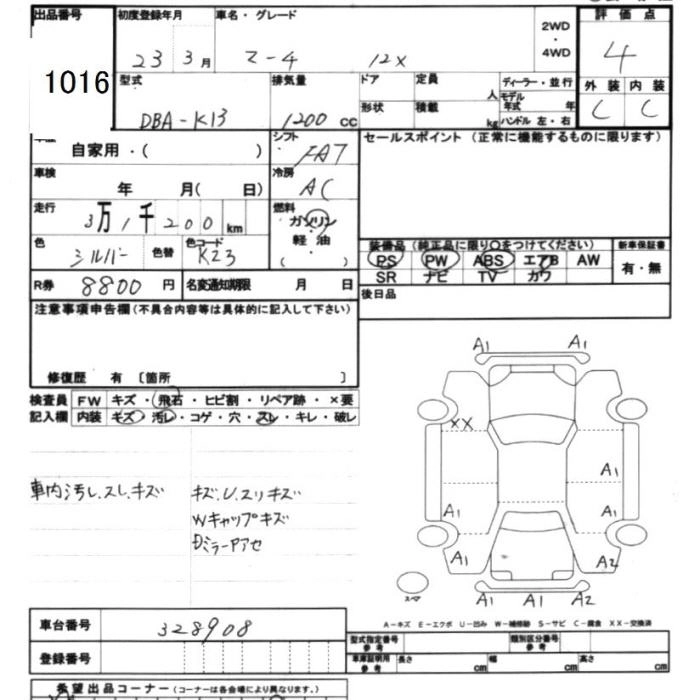 出品番号 初度登録年月 車名・グレード 2WD・4WD 評価点
1016 23 3月 マーチ 12X 4
型式 排気量 ドア 定員 人 ディーラー・並行 外装 内装
DBA-K13 1200 cc 形状 積載 kg モデル年式 年 C C
ハンドル 左・右
自家用・( ) シフト FAT セールスポイント (正常に機能するものに限ります)
車検 年 月( 日) 冷房 AC
走行 3万1千200km 燃料 ガソリン・軽油 ( )
色 シルバー 色替 色コード K23
装備品 (純正品に限り○をつけてください) 新車保証書
PS PW ABS エアB AW 有・無
SR ナビ TV カワ
R券 8800円 名変通知期限 月 日 後日品
注意事項申告欄 (不具合内容等は具体的に記入して下さい)
修復歴 有 〔箇所 〕
検査員 FW キズ・飛石・ヒビ割・リペア跡・×要
記入欄 内装 キズ・汚レ・コゲ・穴・スレ・キレ・破レ
車内汚レ.スレ.キズ キズ.U.スリキズ
Wキャップキズ
DミラーアアセA1 A1
XX
A1
A1 A1
A1 A2
A1 A1 A1
スマ
A-キズ E-エクボ U-凹み W-補修跡 S-サビ C-腐食 XX-交換済
車台番号 328908
型式指定番号 参考 類別区分番号 参考
登録番号
車庫証明用 参考 長さ cm 幅 cm 高さ cm
希望出品コーナー (コーナーは各会場により異なります.)